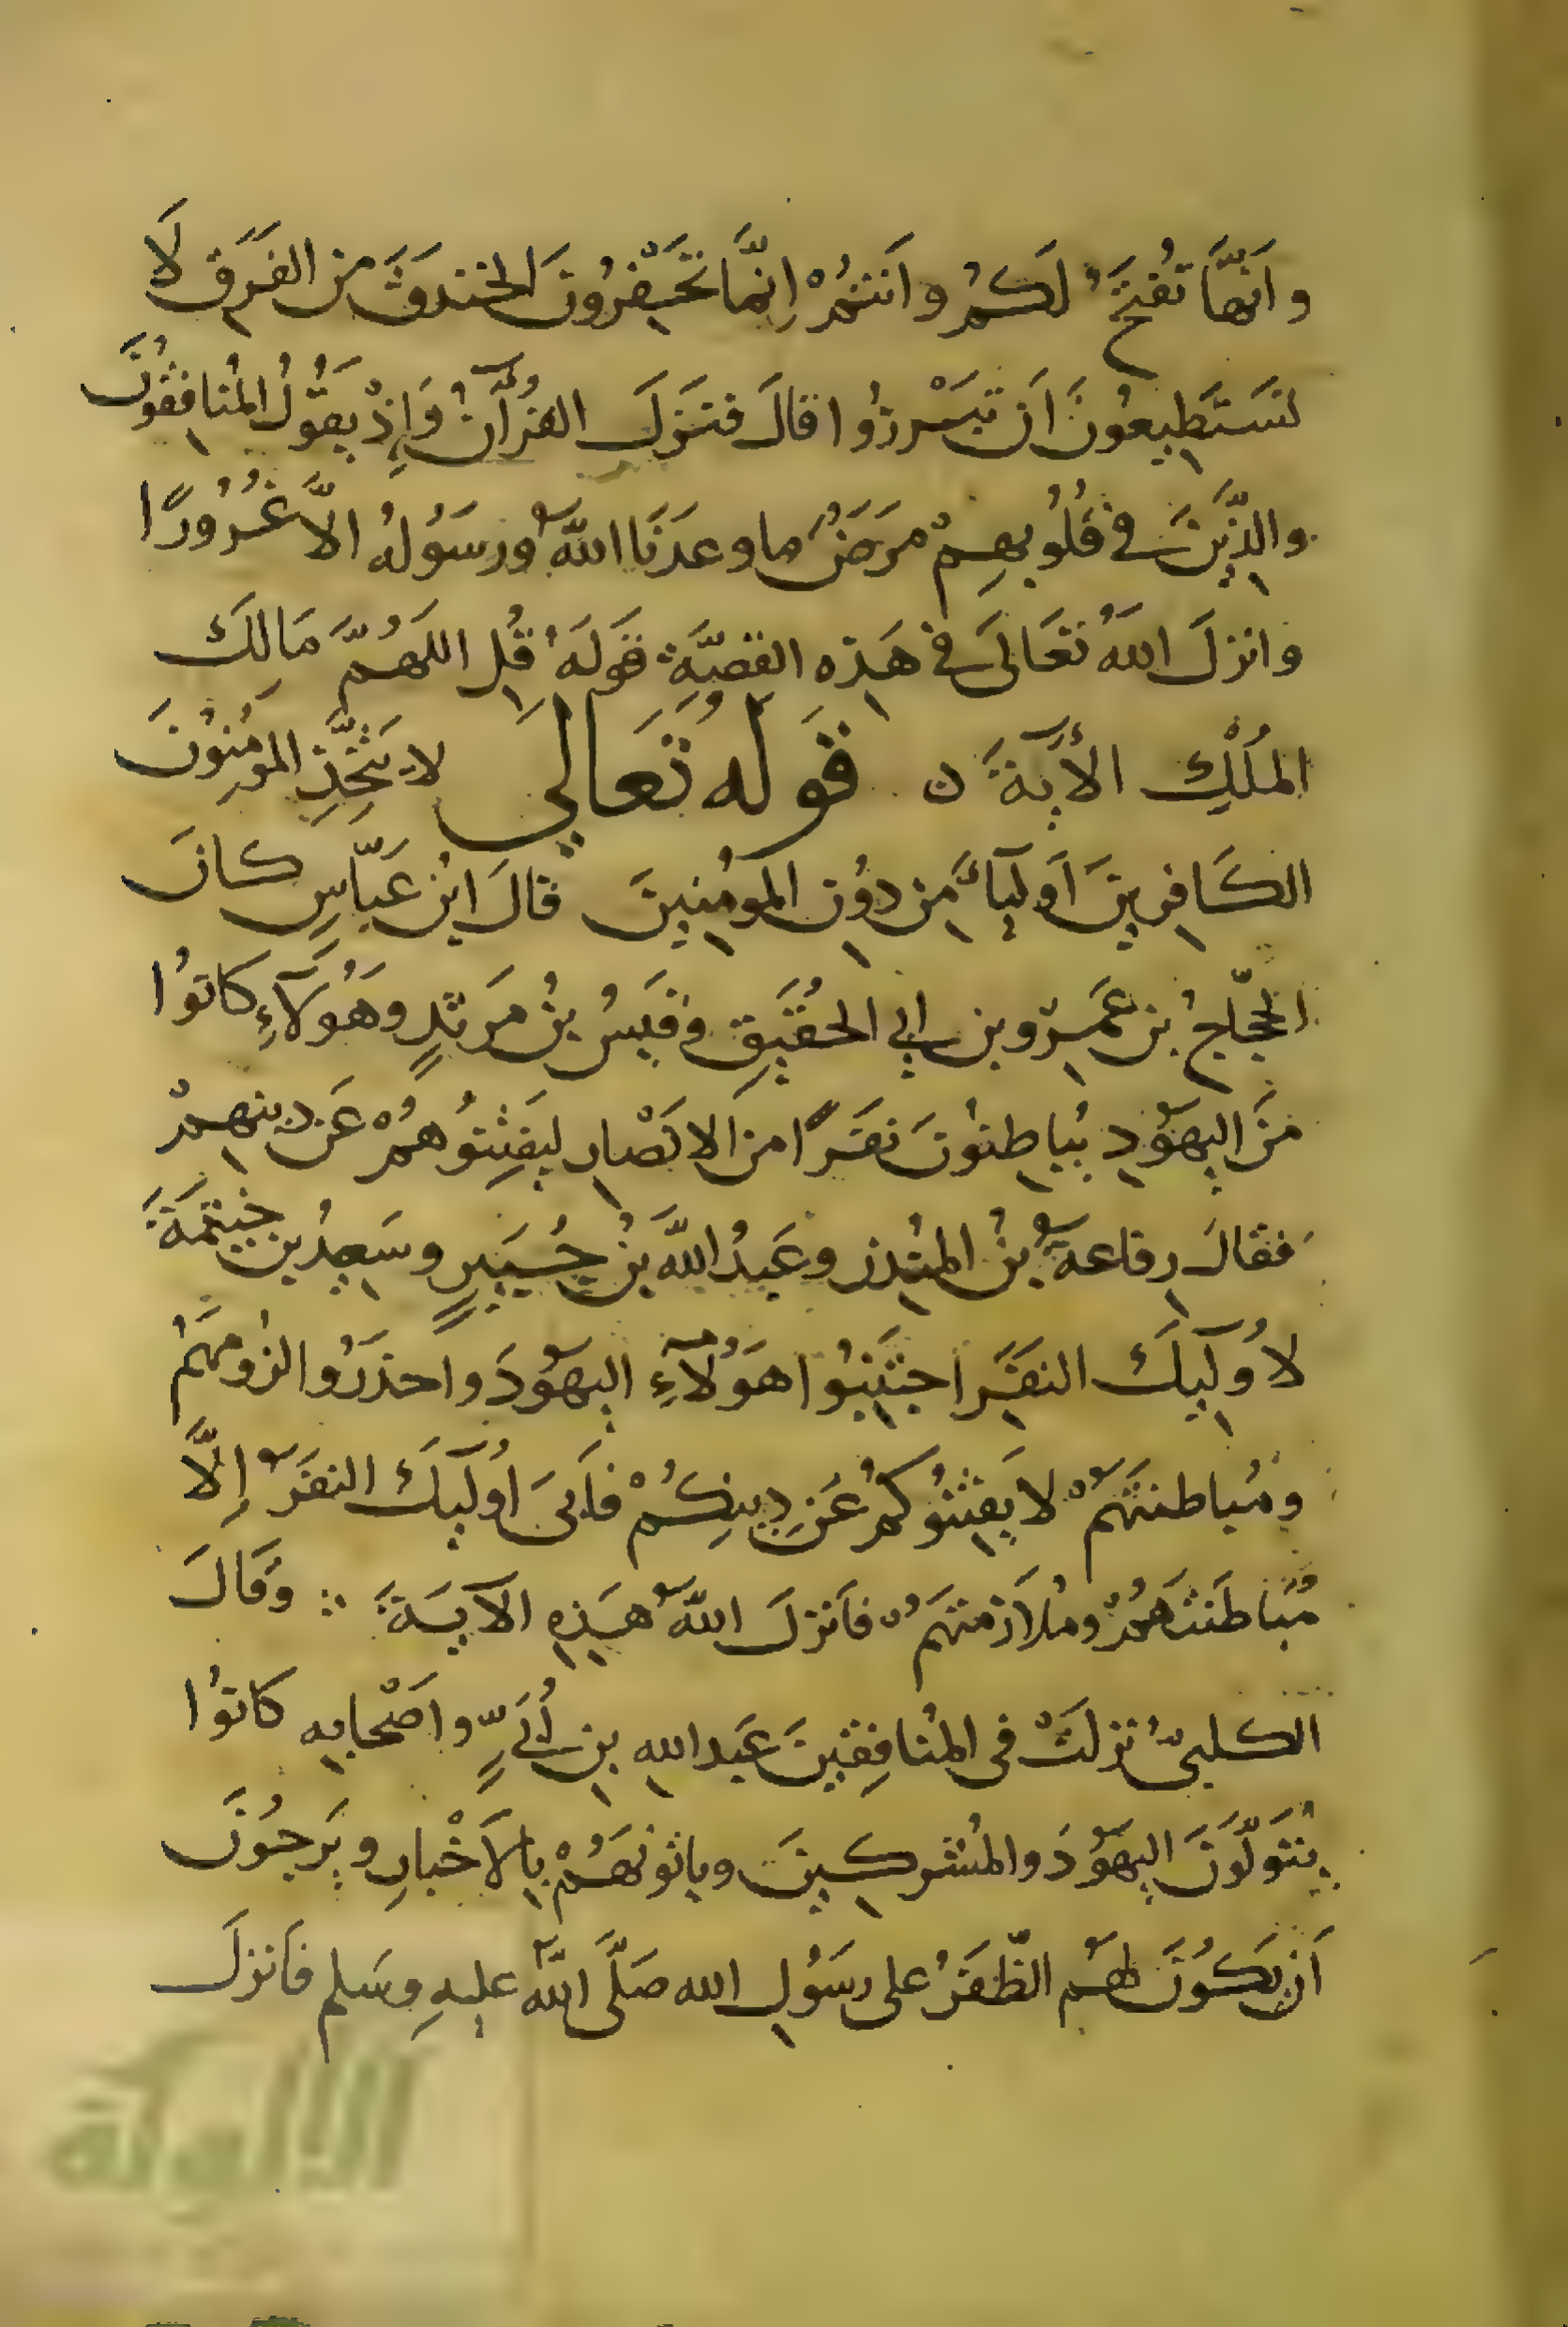 وَاَنَّهَا تُفْتَحُ لَكُمْ وَاَنتُمْ اِنَّمَا تَحْفِرُونَ الخَندَقَ مِنَ الفَرَقِ لَا
تَسْتَطِيعُونَ اَن تَبْرُزُوا قَالَ فَنَزَلَ القُرْآنُ وَاِذْ يَقُولُ المُنَافِقُونَ
وَالَّذِينَ فِي قُلُوبِهِمْ مَرَضٌ مَا وَعَدَنَا اللهُ وَرَسُولُهُ اِلَّا غُرُورًا
وَانزَلَ اللهُ تَعَالَى فِي هَذِهِ القِصَّةِ قَوْلَهُ قُلِ اللَّهُمَّ مَالِكَ
المُلْكِ الآيَةَ ن قَوْلُهُ تَعَالَي لَا يَتَّخِذِ المُومِنُونَ
الكَافِرِينَ اَوْلِيَآءَ مِن دُونِ المُومِنِينَ قَالَ ابْن عَبَّاسٍ كَانَ
الحَجَّاجُ بْن عَمْرٍو بن اَبِي الحُقَيْقِ وَقَيْسُ بْنُ مَرْثَدٍ وَهَوُلَآءِ كَانُوا
مِنَ اليَهُودِ يُبَاطِنُونَ نَفَرًا مِنَ الاَنْصَارِ لِيَفْتِنُوهُمْ عَن دِينِهِمْ
فَقَالَ رِفَاعَةُ بْنُ المُنْذِر وَعَبْدُ اللهِ بْنُ جُبَيْرٍ وَسَعِيدُ بْن خَيْثَمَةَ
لِاُولَيِكَ النَّفَرِ اجْتَنِبُوا هَوُلَآءِ اليَهُودَ وَاحْذَرُوا لُزُومَهُمْ
وَمُبَاطَنَتَهُمْ لَا يَفْتِنُوكُمْ عَن دِينِكُمْ فَاَبَى اُولَيِكَ النَّفَرُ اِلَّا
مُبَاطَنَتَهُمْ وَمُلَازَمَتَهُمْ فَاَنزَلَ اللهُ هَذِهِ الآيَةَ ∴ وَقَالَ
الكَلْبِيُّ نَزَلَتْ فِي المُنَافِقِينَ عَبْدِ اللهِ بْنِ اُبَيٍّ وَاَصْحَابِهِ كَانُوا
يَتَوَلَّوْنَ اليَهُودَ وَالمُشْرِكِينَ وَيَاتُونَهُمْ بِالاَخْبَارِ وَيَرْجُونَ
اَن يَكُونَ لَهُمُ الظَّفَرُ عَلَى رَسُولِ اللهِ صَلَّى اللهُ عَلَيْهِ وَسَلم فَاَنزَلَ
الألوكة